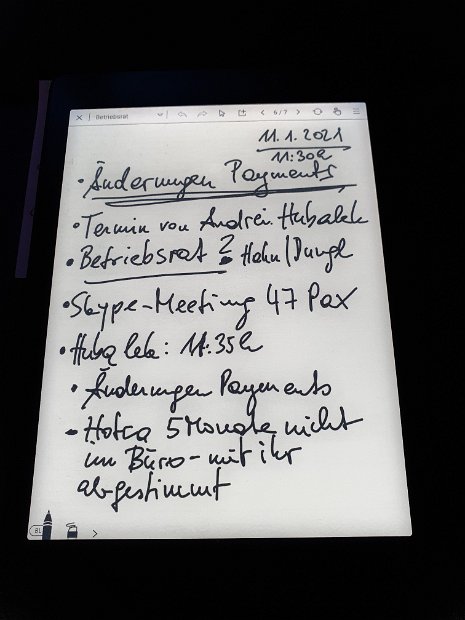 Betriebsrat 6/7
11.1.2021
11:30h
• Änderungen Payments
• Termin von Andrei Hubalek
• Betriebsrat? Hahn/Dungl
• Skype-Meeting 47 Pax
• Hubalek: 11:35h
• Änderungen Payments
- 5 Monate nicht
im Büro - mit ihr
abgestimmt